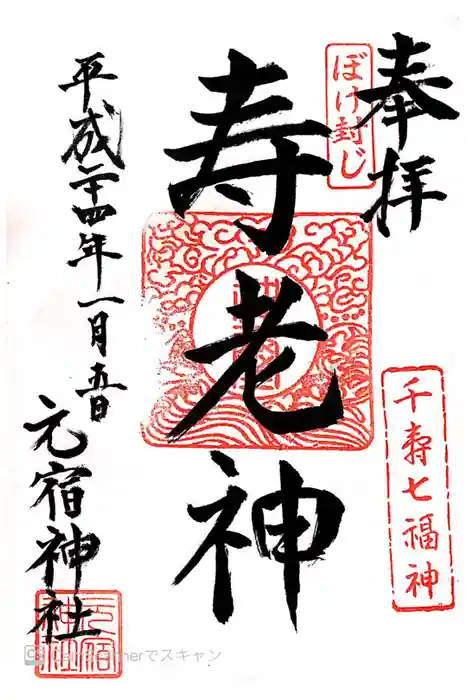 奉拝
ぼけ封じ
千寿七福神
寿老神
平成二十四年一月五日
元宿神社
元宿神社
CamScannerでスキャン